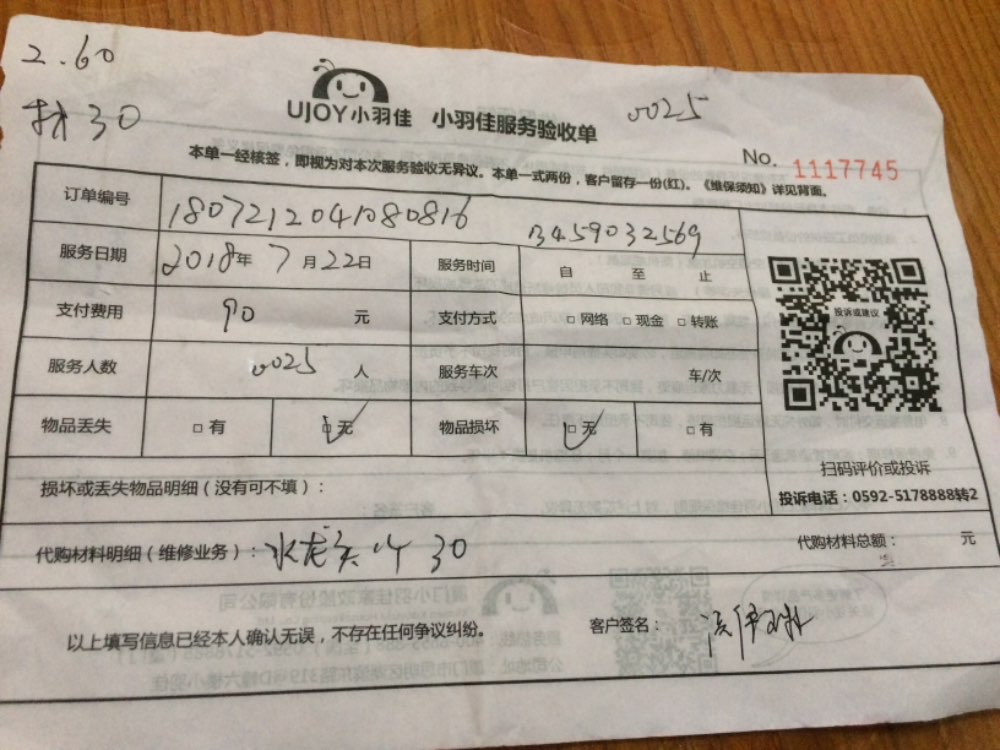 2.60
找30
UJOY小羽佳 小羽佳服务验收单
0025
No. 1117745
本单一经核签，即视为对本次服务验收无异议。本单一式两份，客户留存一份(红)。《维保须知》详见背面。
订单编号 1807212041080816 13459032569
服务日期 2018年7月22日 服务时间 自 至 止
支付费用 90 元 支付方式 □网络 □现金 □转账
服务人数 0025 人 服务车次 车/次
物品丢失 □有 □无 物品损坏 □无 □有
投诉或建议
扫码评价或投诉
投诉电话：0592-5178888转2
损坏或丢失物品明细（没有可不填）：
代购材料明细（维修业务）：水龙头 30
代购材料总额： 元
以上填写信息已经本人确认无误，不存在任何争议纠纷。
客户签名：